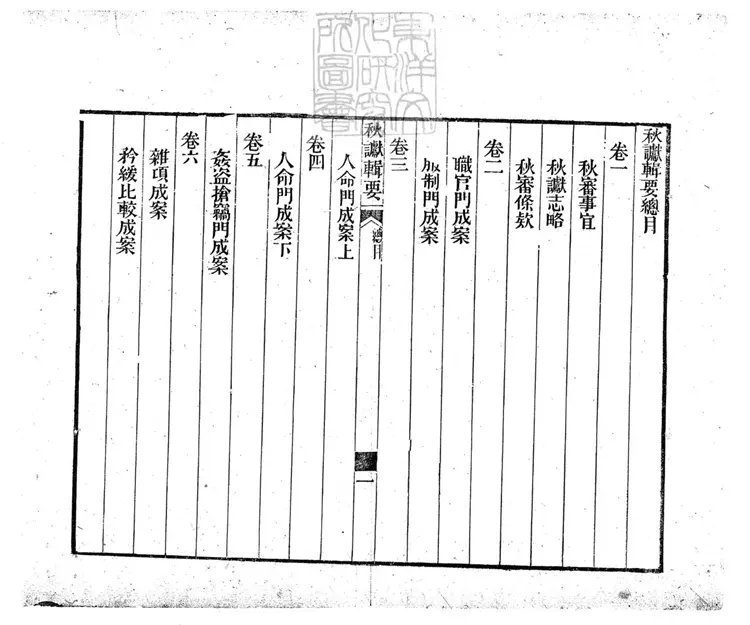 東洋文
化研究
所圖書
秋讞輯要總目
卷一
秋審事宜
秋讞志略
秋審條欵
卷二
職官門成案
服制門成案
卷三
秋讞輯要
總目
一
人命門成案上
卷四
人命門成案下
卷五
姦盜搶竊門成案
卷六
雜項成案
矜緩比較成案